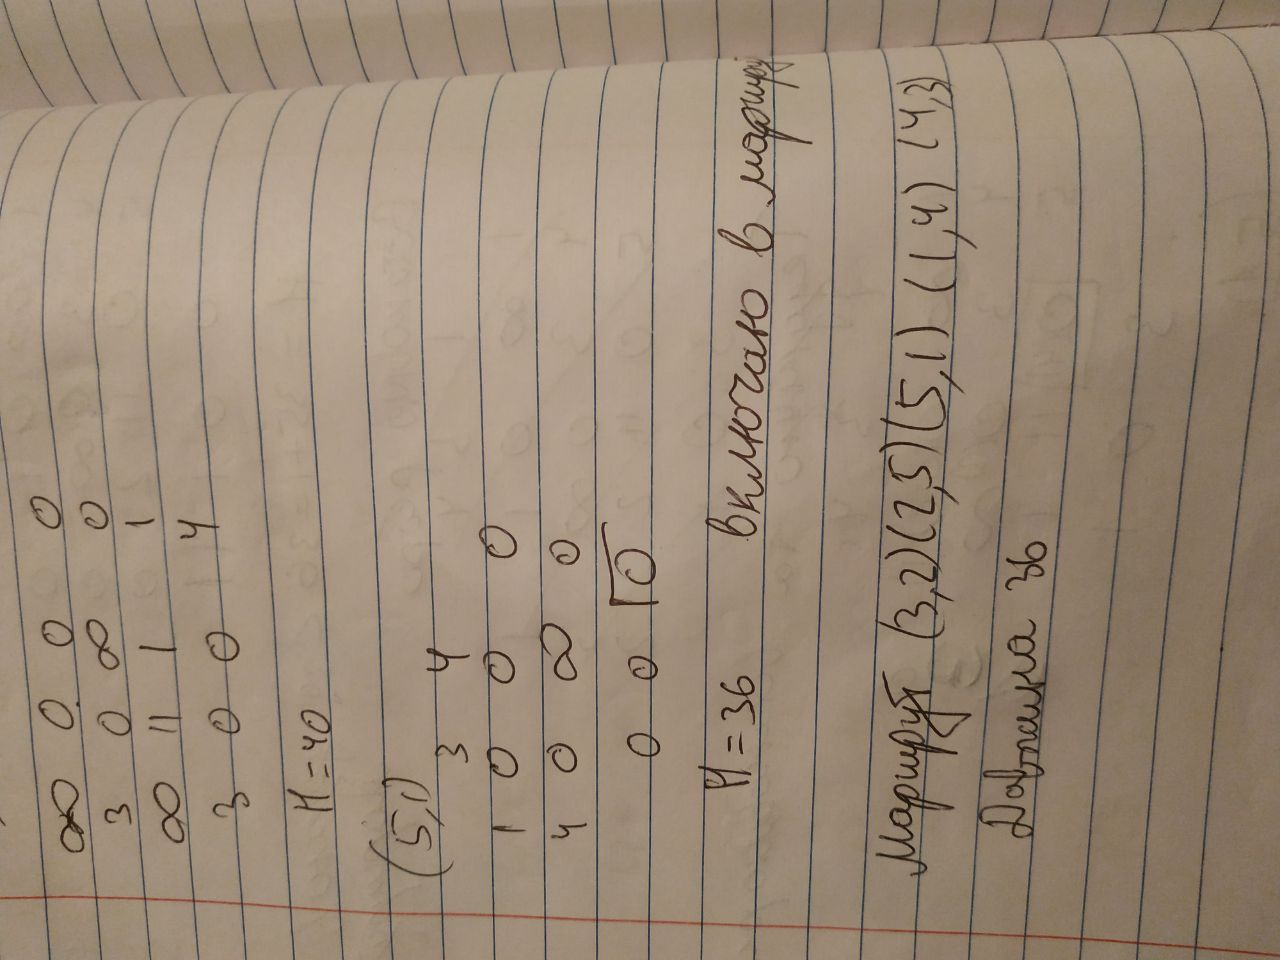 ∞ 0 0 0
3 0 ∞ 0
∞ 11 1 1
3 0 0 4
H = 40
(5,1)
3 4
1 0 0 0
4 0 ∞ 0
0 0 0
H = 36 включаю в маршру
Маршрут (3,2)(2,5)(5,1)(1,4)(4,3)
Довжина 36